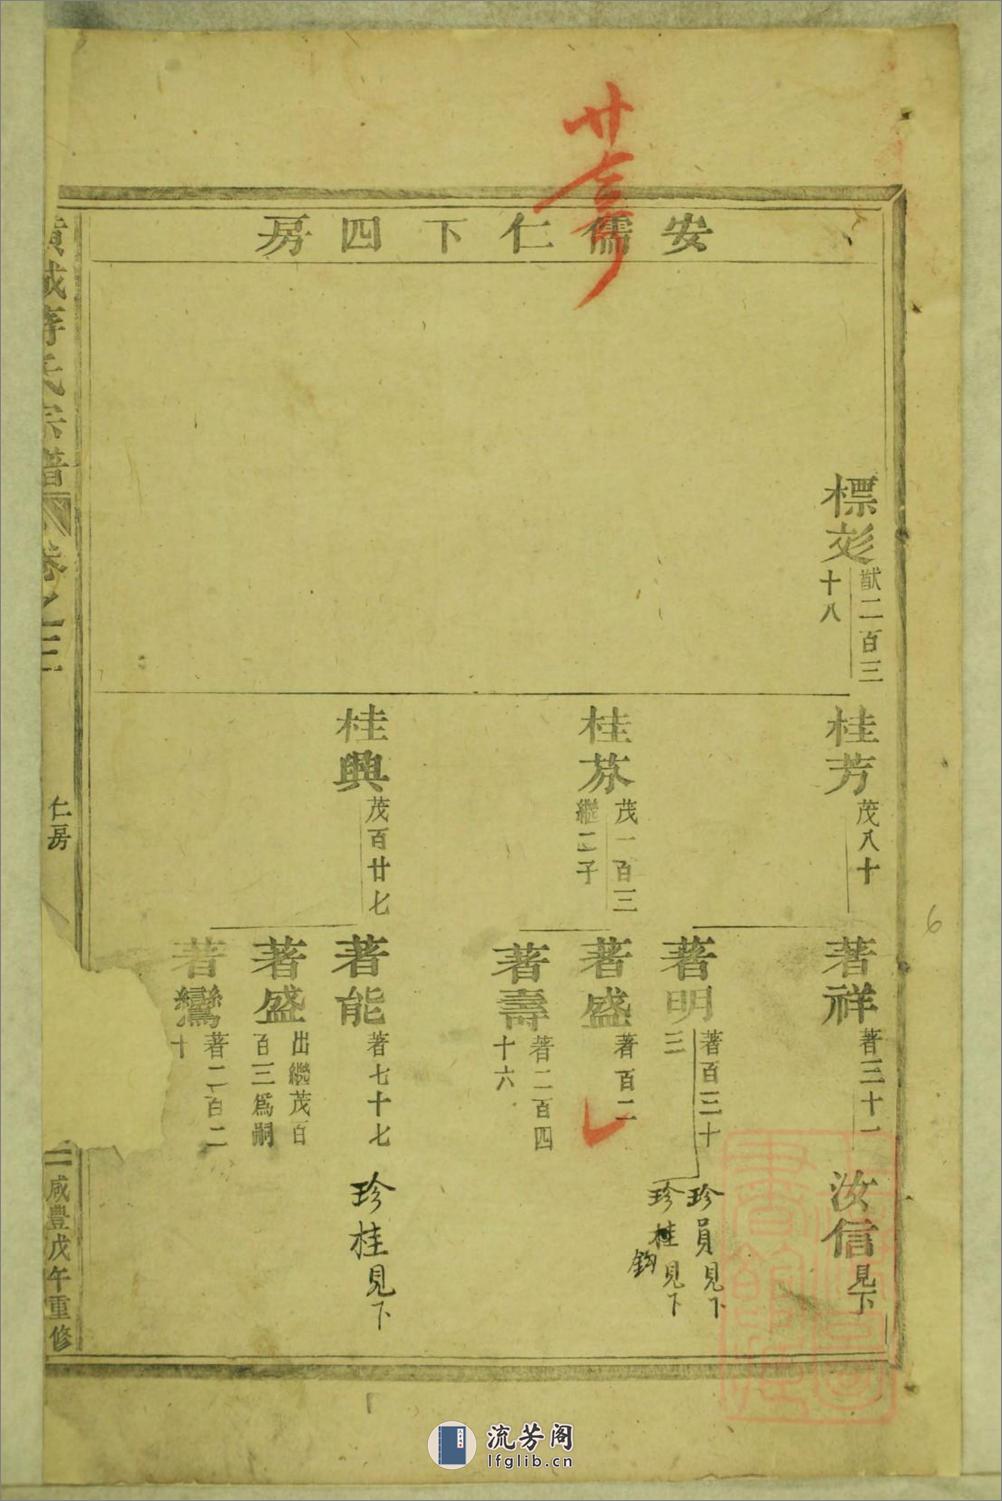 安儒仁下四房
標彣 猷二百三十八
桂芳 茂八十
桂芬 茂一百三 繼二子
桂興 茂百廿七
著祥 著三十一
汝信 見下
著明 著百三十三
珍員見下
珍桂見下
鈞
著盛 著百二
著壽 著二百四十六
著能 著七十七
珍桂見下
著盛 出繼茂百百三爲嗣
著鸞 著二百二十
氏宗譜
卷之三
仁房
咸豐戊午重修
6
流芳阁
lfglib.cn